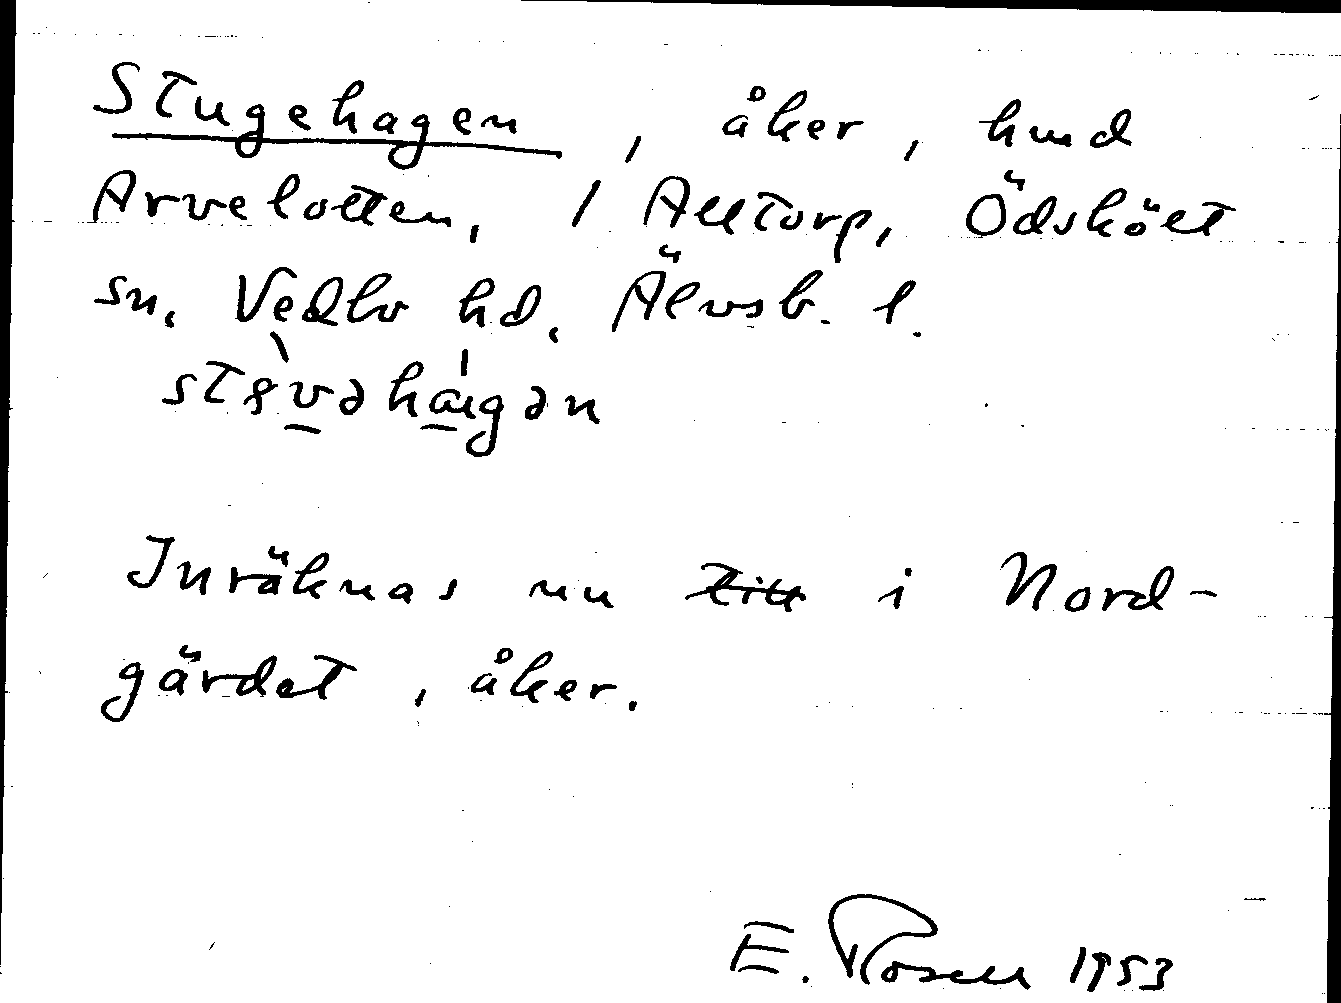 Stugehagen, åker, hmd
Arvelotten, 1 Alltorp, Ödsköelt
sn. Vedbo hd. Älvsb. l.
Inräknas nu till i Nord-
gärdet, åker.
E. Rosell 1953